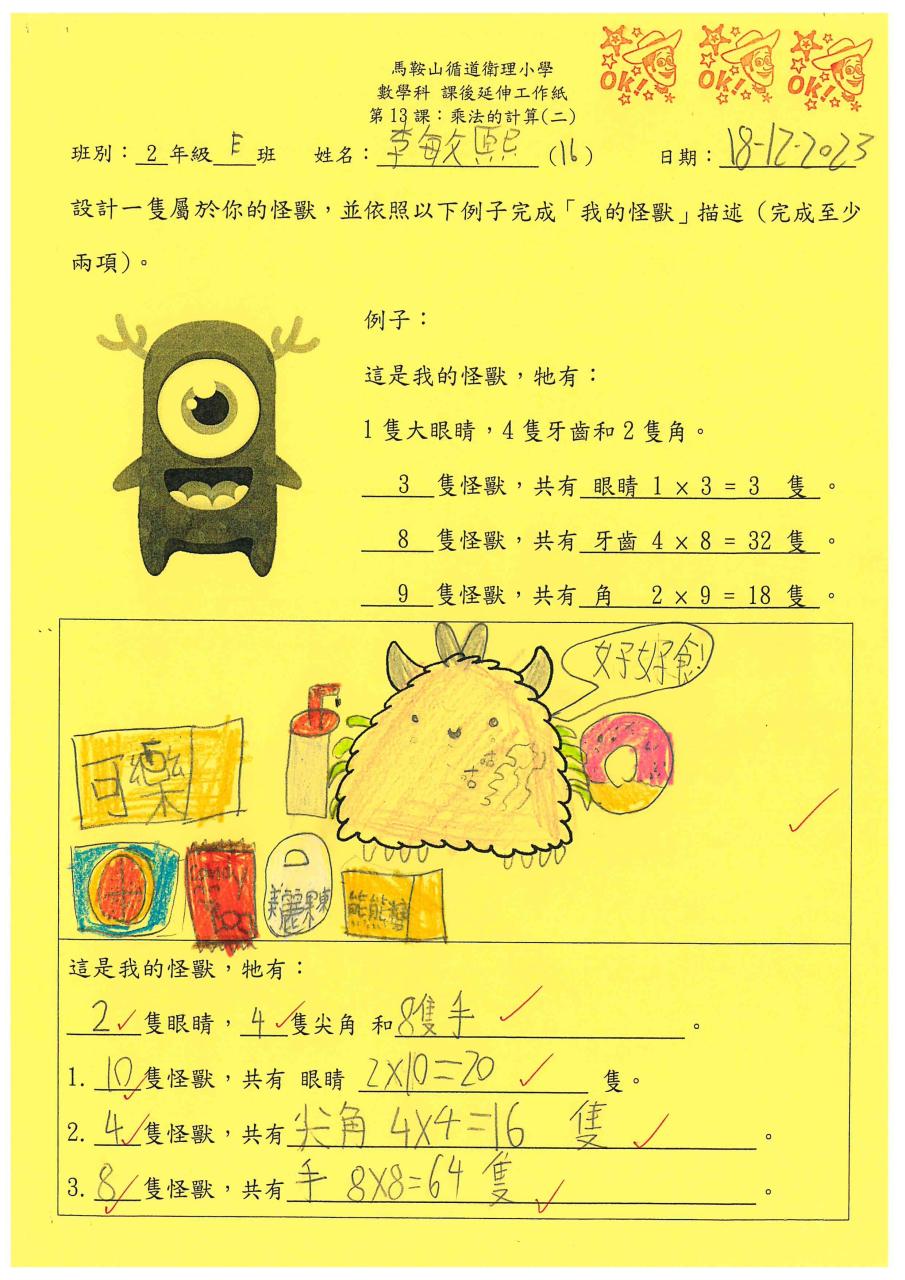 馬鞍山循道衛理小學
數學科 課後延伸工作紙
第13課：乘法的計算(二)
Ok! Ok! Ok!
班別：2年級E班 姓名：李敏熙 (16) 日期：18-12-2023
設計一隻屬於你的怪獸，並依照以下例子完成「我的怪獸」描述（完成至少
兩項）。
例子：
這是我的怪獸，牠有：
1隻大眼睛，4隻牙齒和2隻角。
3 隻怪獸，共有 眼睛 1 × 3 = 3 隻 。
8 隻怪獸，共有 牙齒 4 × 8 = 32 隻 。
9 隻怪獸，共有 角 2 × 9 = 18 隻 。
好好食!
咕咕
可樂
candy
美麗果凍
熊熊糖
這是我的怪獸，牠有：
2 隻眼睛，4 隻尖角 和8隻手 。
1. 10 隻怪獸，共有 眼睛 2×10=20 隻。
2. 4 隻怪獸，共有 尖角 4×4=16 隻 。
3. 8 隻怪獸，共有 手 8×8=64 隻 。